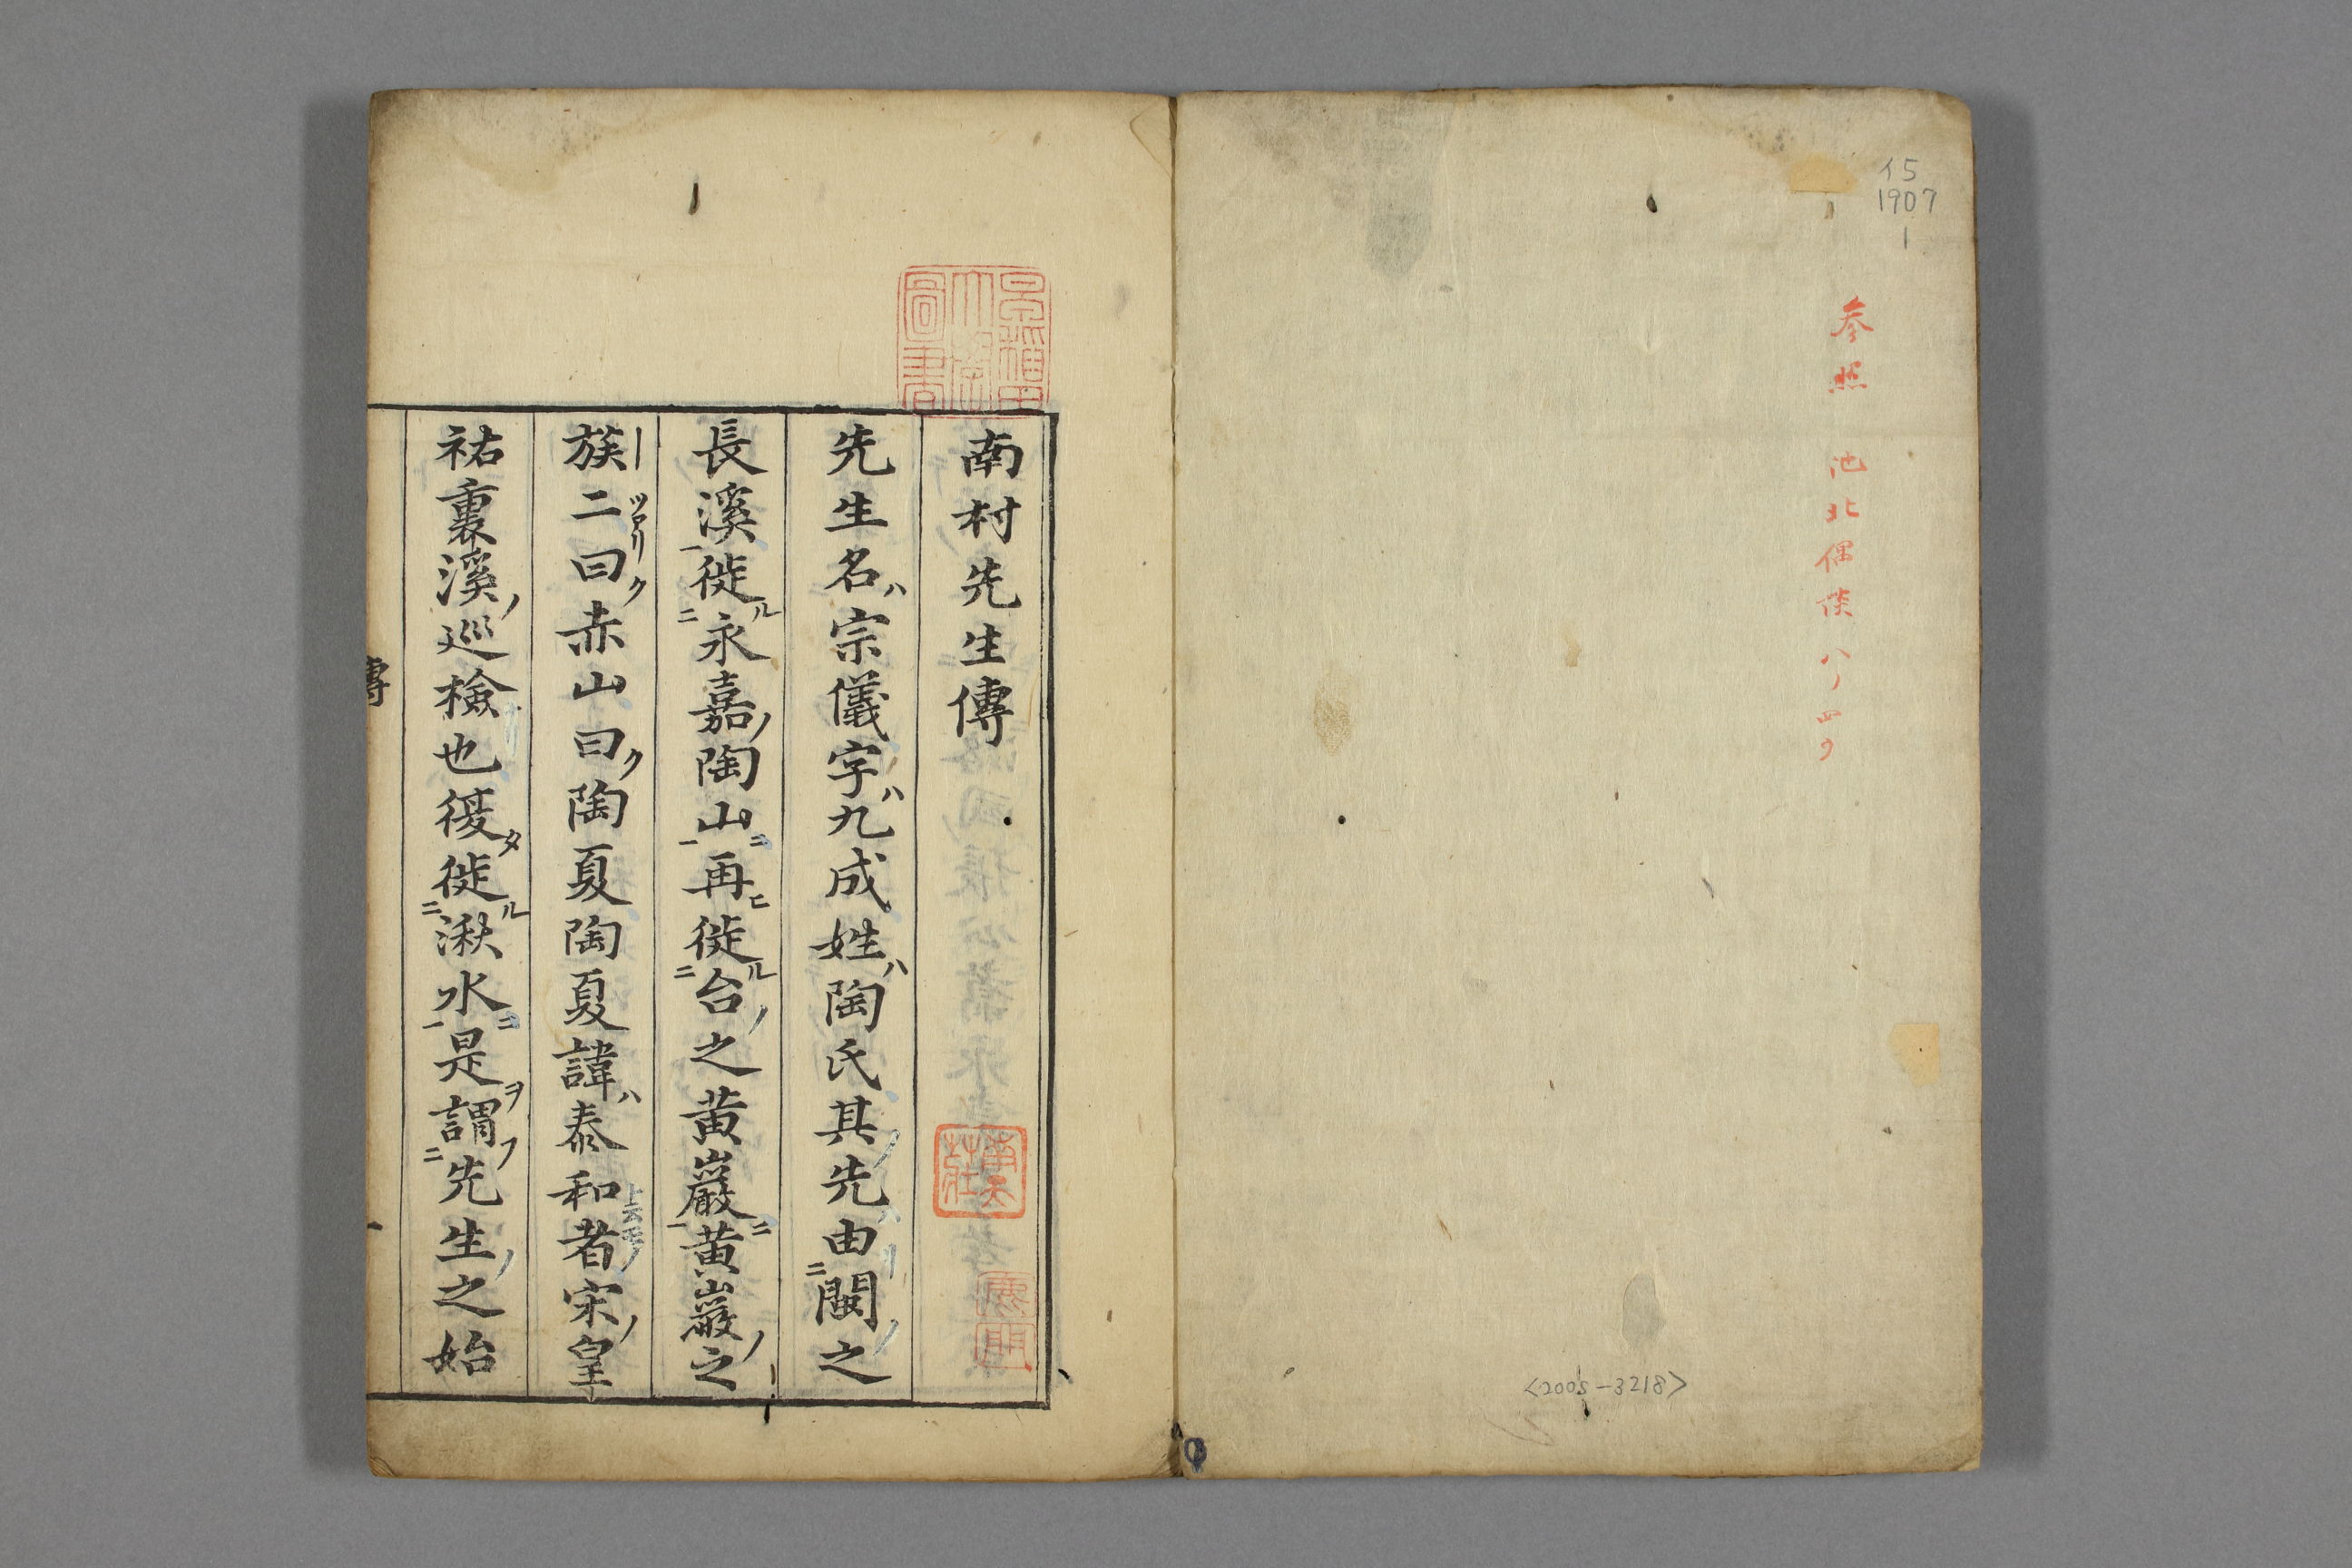 イ5
1907
1
参照 池北偶談 八ノ四ウ
<2005-3218>
早稲田大学圖書
南村先生傳
先生名ハ宗儀字ハ九成姓ハ陶氏其ノ先由閩ノ之
長溪徙ル永嘉ノ陶山ニ再ヒ徙ル台ノ之黄巖ニ黄巖ノ之
族二曰ク赤山曰ク陶夏陶夏諱ハ泰和者宋ノ皇
祐裏溪ノ巡檢也復タ徙ル湫水ニ是ヲ謂フ先生ノ之始
傳